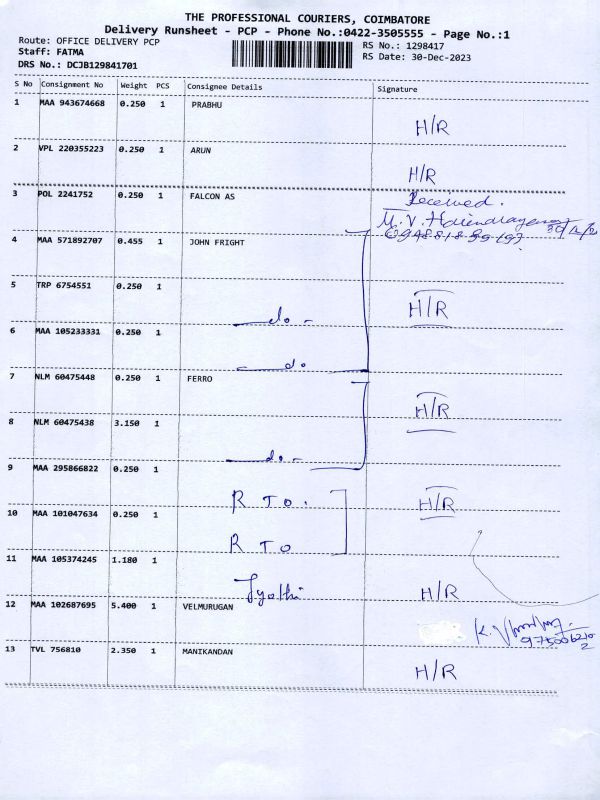 THE PROFESSIONAL COURIERS, COIMBATORE
Delivery Runsheet - PCP - Phone No.:0422-3505555 - Page No.:1
Route: OFFICE DELIVERY PCP
RS No.: 1298417
Staff: FATMA
RS Date: 30-Dec-2023
DRS No.: DCJB129841701
S No Consignment No Weight PCS Consignee Details Signature
1 MAA 943674668 0.250 1 PRABHU
H/R
2 VPL 220355223 0.250 1 ARUN
H/R
3 POL 2241752 0.250 1 FALCON AS
Received.
M.V.
4 MAA 571892707 0.455 1 JOHN FRIGHT
5 TRP 6754551 0.250 1
H/R
do -
6 MAA 105233331 0.250 1
do
7 NLM 60475448 0.250 1 FERRO
H/R
8 NLM 60475438 3.150 1
do -
9 MAA 295866822 0.250 1
R T O . H/R
10 MAA 101047634 0.250 1
R T O
11 MAA 105374245 1.180 1
Jyothi H/R
12 MAA 102687695 5.400 1 VELMURUGAN
K.
13 TVL 756810 2.350 1 MANIKANDAN
H/R